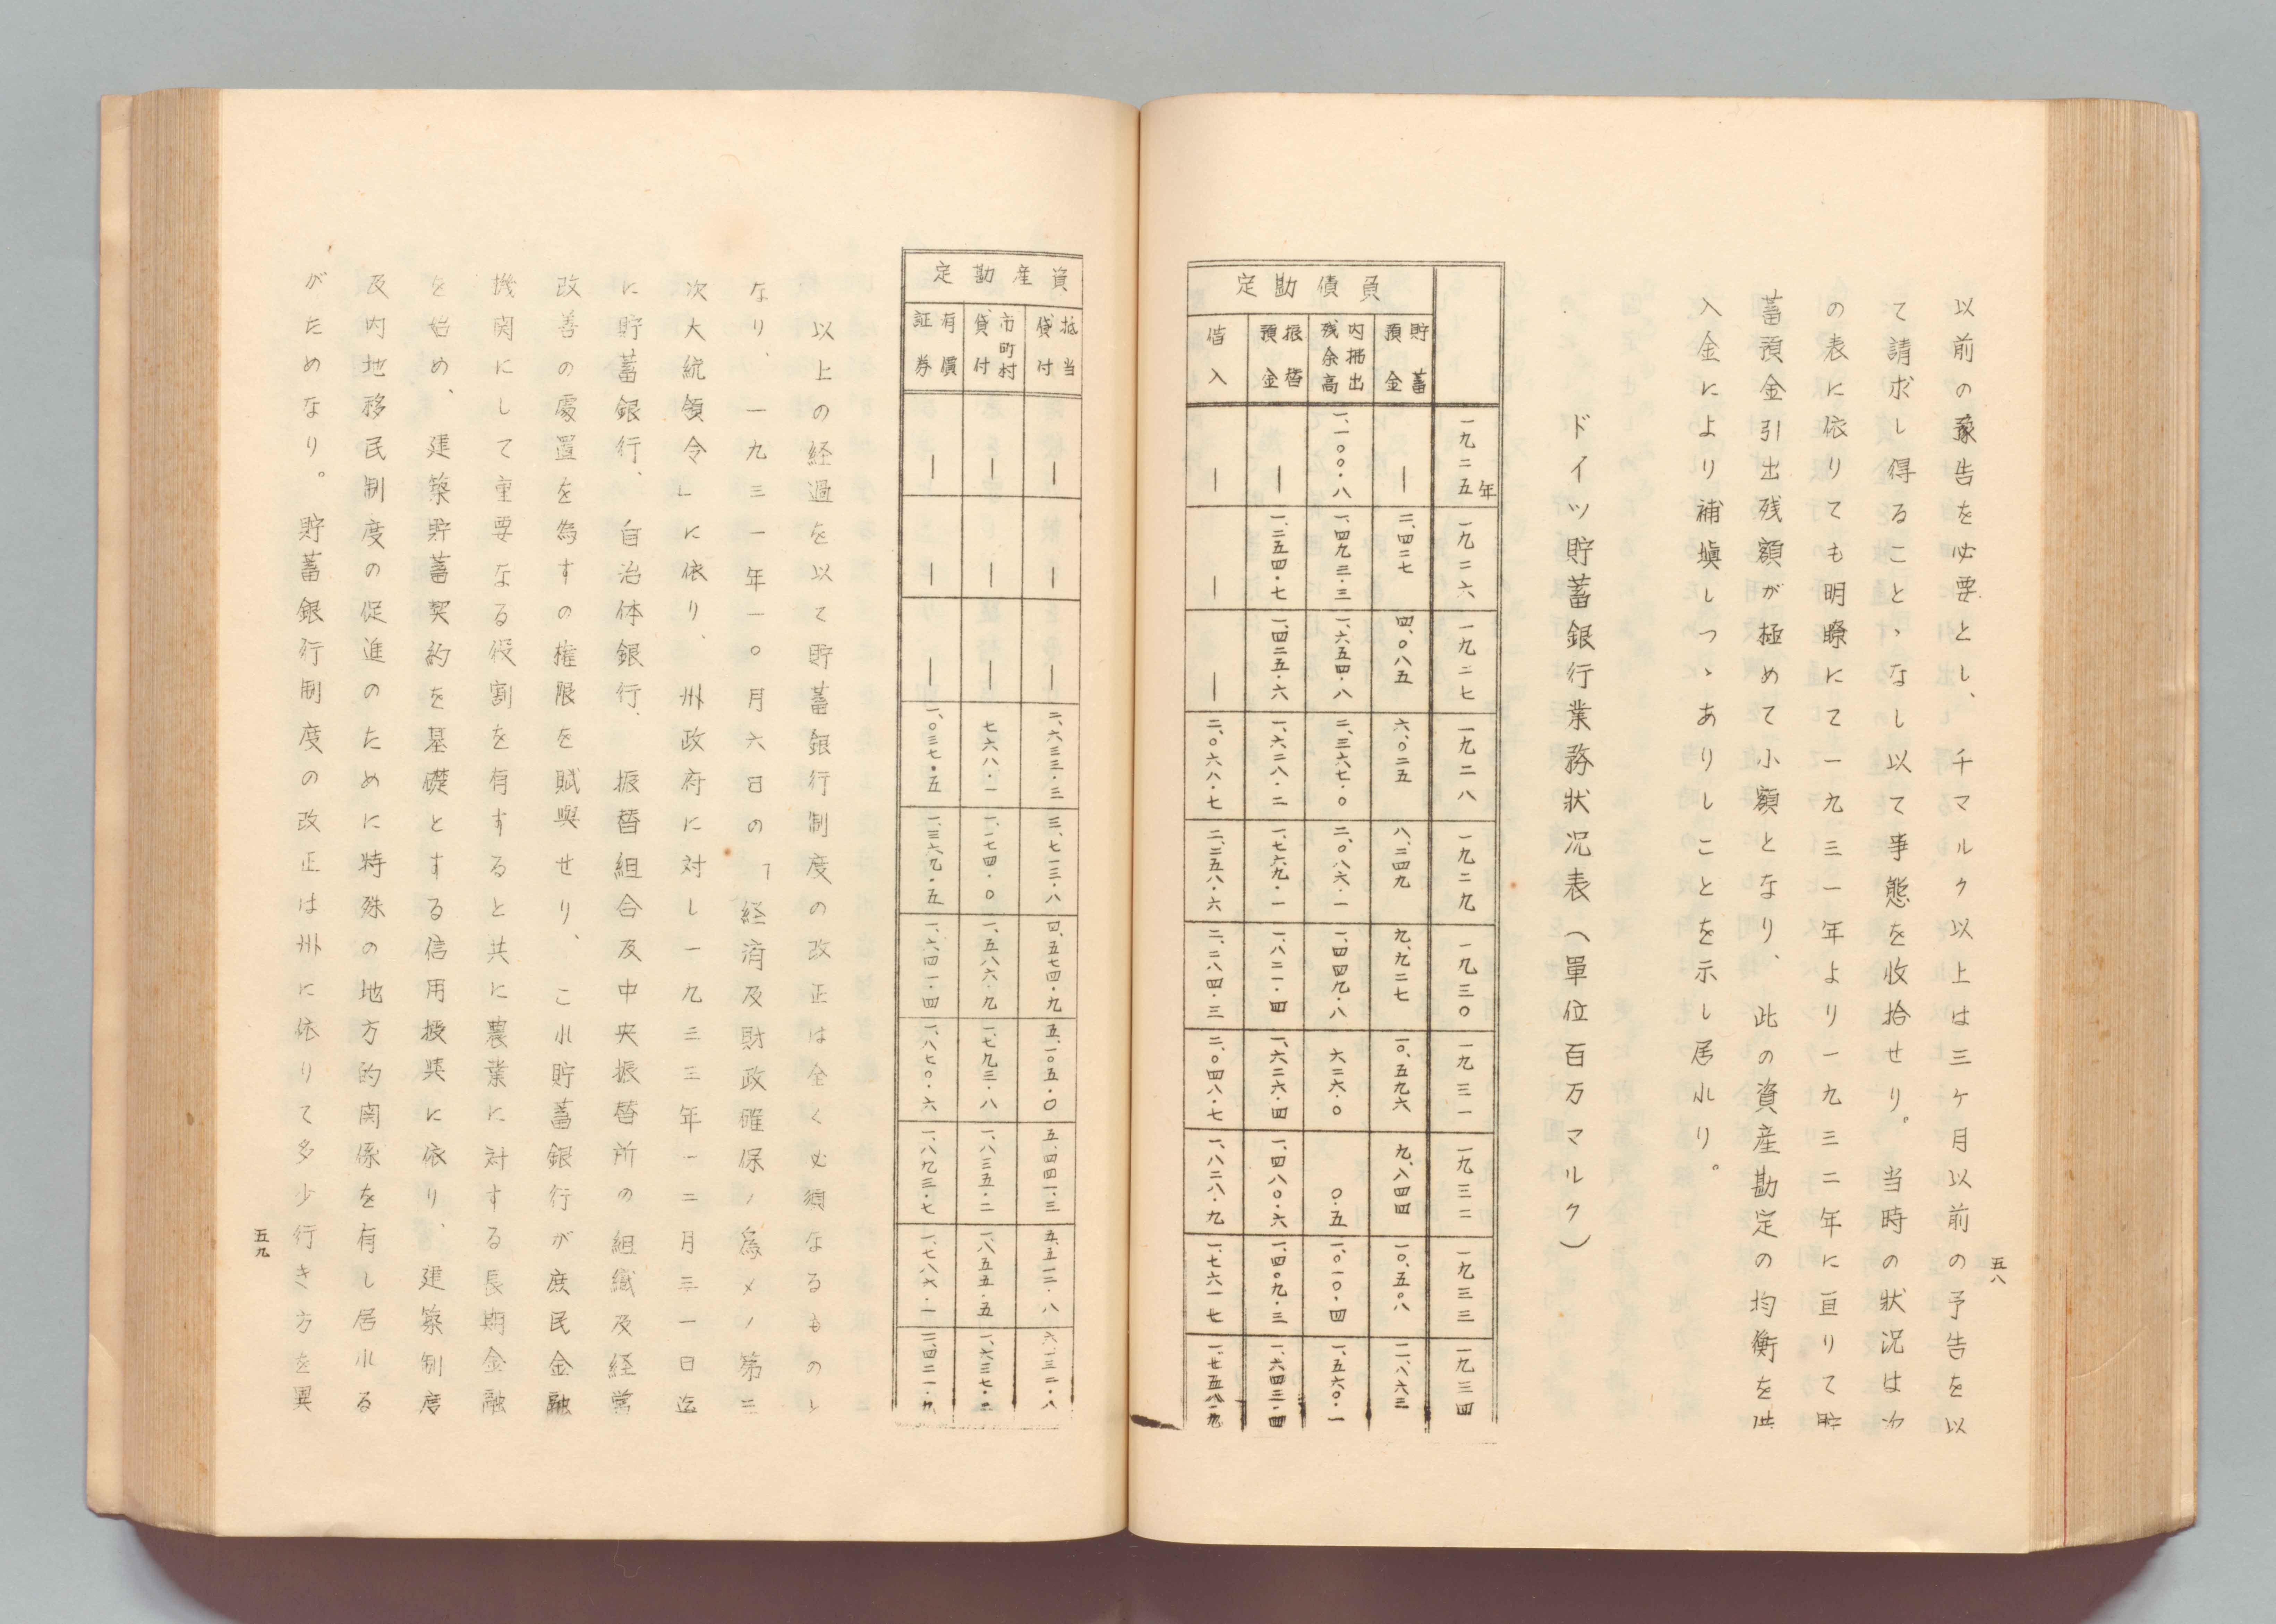 以前の豫告を必要とし、千マルク以上は三ヶ月以前の予告を以
て請求し得ることゝなし以て事態を收拾せり。当時の狀況は次
の表に依りても明瞭にて一九三一年より一九三二年に亘りて貯
蓄預金引出残額が極めて小額となり、此の資産勘定の均衡を借
入金により補塡しつゝありしことを示し居れり。
ドイツ貯蓄銀行業務狀況表（單位百万マルク）
一九二五年 一九二六 一九二七 一九二八 一九二九 一九三〇 一九三一 一九三二 一九三三 一九三四
負債勘定
貯蓄預金 ― 二、四二七 四、〇八五 六、〇二五 八、三四九 九、九二七 一〇、五九六 九、八四四 一〇、五〇八 一一、八六三
内拂出残余高 一、一〇〇・八 一、四九三・三 一、六五四・八 二、三六七・〇 二、〇八六・一 一、四四九・八 六二六・〇 〇・五 一、〇一〇・四 一、五六〇・一
振替預金 ― 一、二五四・七 一、四二五・六 一、六二八・二 一、七六九・一 一、八二一・四 一、六二六・四 一、四八〇・六 一、四〇九・三 一、六四三・四
借入 ― ― ― 二、〇六八・七 二、三五八・六 二、二八四・三 二、〇四八・七 一、八二八・九 一、七六一七 一、七五八・九
五八
資産勘定
抵当貸付 ― ― ― 二、六三三・三 三、七一三・八 四、五七四・九 五、一〇五・〇 五、四四一・三 五、五一二・八 六、一三二・八
市町村貸付 ― ― ― 七六八・一 一、一七四・〇 一、五八六・九 一、七九三・八 一、八三五・二 一、八五五・五 一、六三七・二
有價証券 ― ― ― 一、〇三七・五 一、三六九・五 一、六四一・四 一、八七〇・六 一、八九三・七 一、七八六・一 二、四二一・九
以上の経過を以て貯蓄銀行制度の改正は全く必須なるものと
なり、一九三一年一〇月六日の「経済及財政確保ノ爲メノ第三
次大統領令」に依り、州政府に対し一九三三年一二月三一日迄
に貯蓄銀行、自治体銀行、振替組合及中央振替所の組織及経営
改善の處置を為すの権限を賦與せり、これ貯蓄銀行が庶民金融
機関にして重要なる役割を有すると共に農業に対する長期金融
を始め、建築貯蓄契約を基礎とする信用授與に依り、建築制度
及内地移民制度の促進のために特殊の地方的関係を有し居れる
がためなり。貯蓄銀行制度の改正は州に依りて多少行き方を異
五九